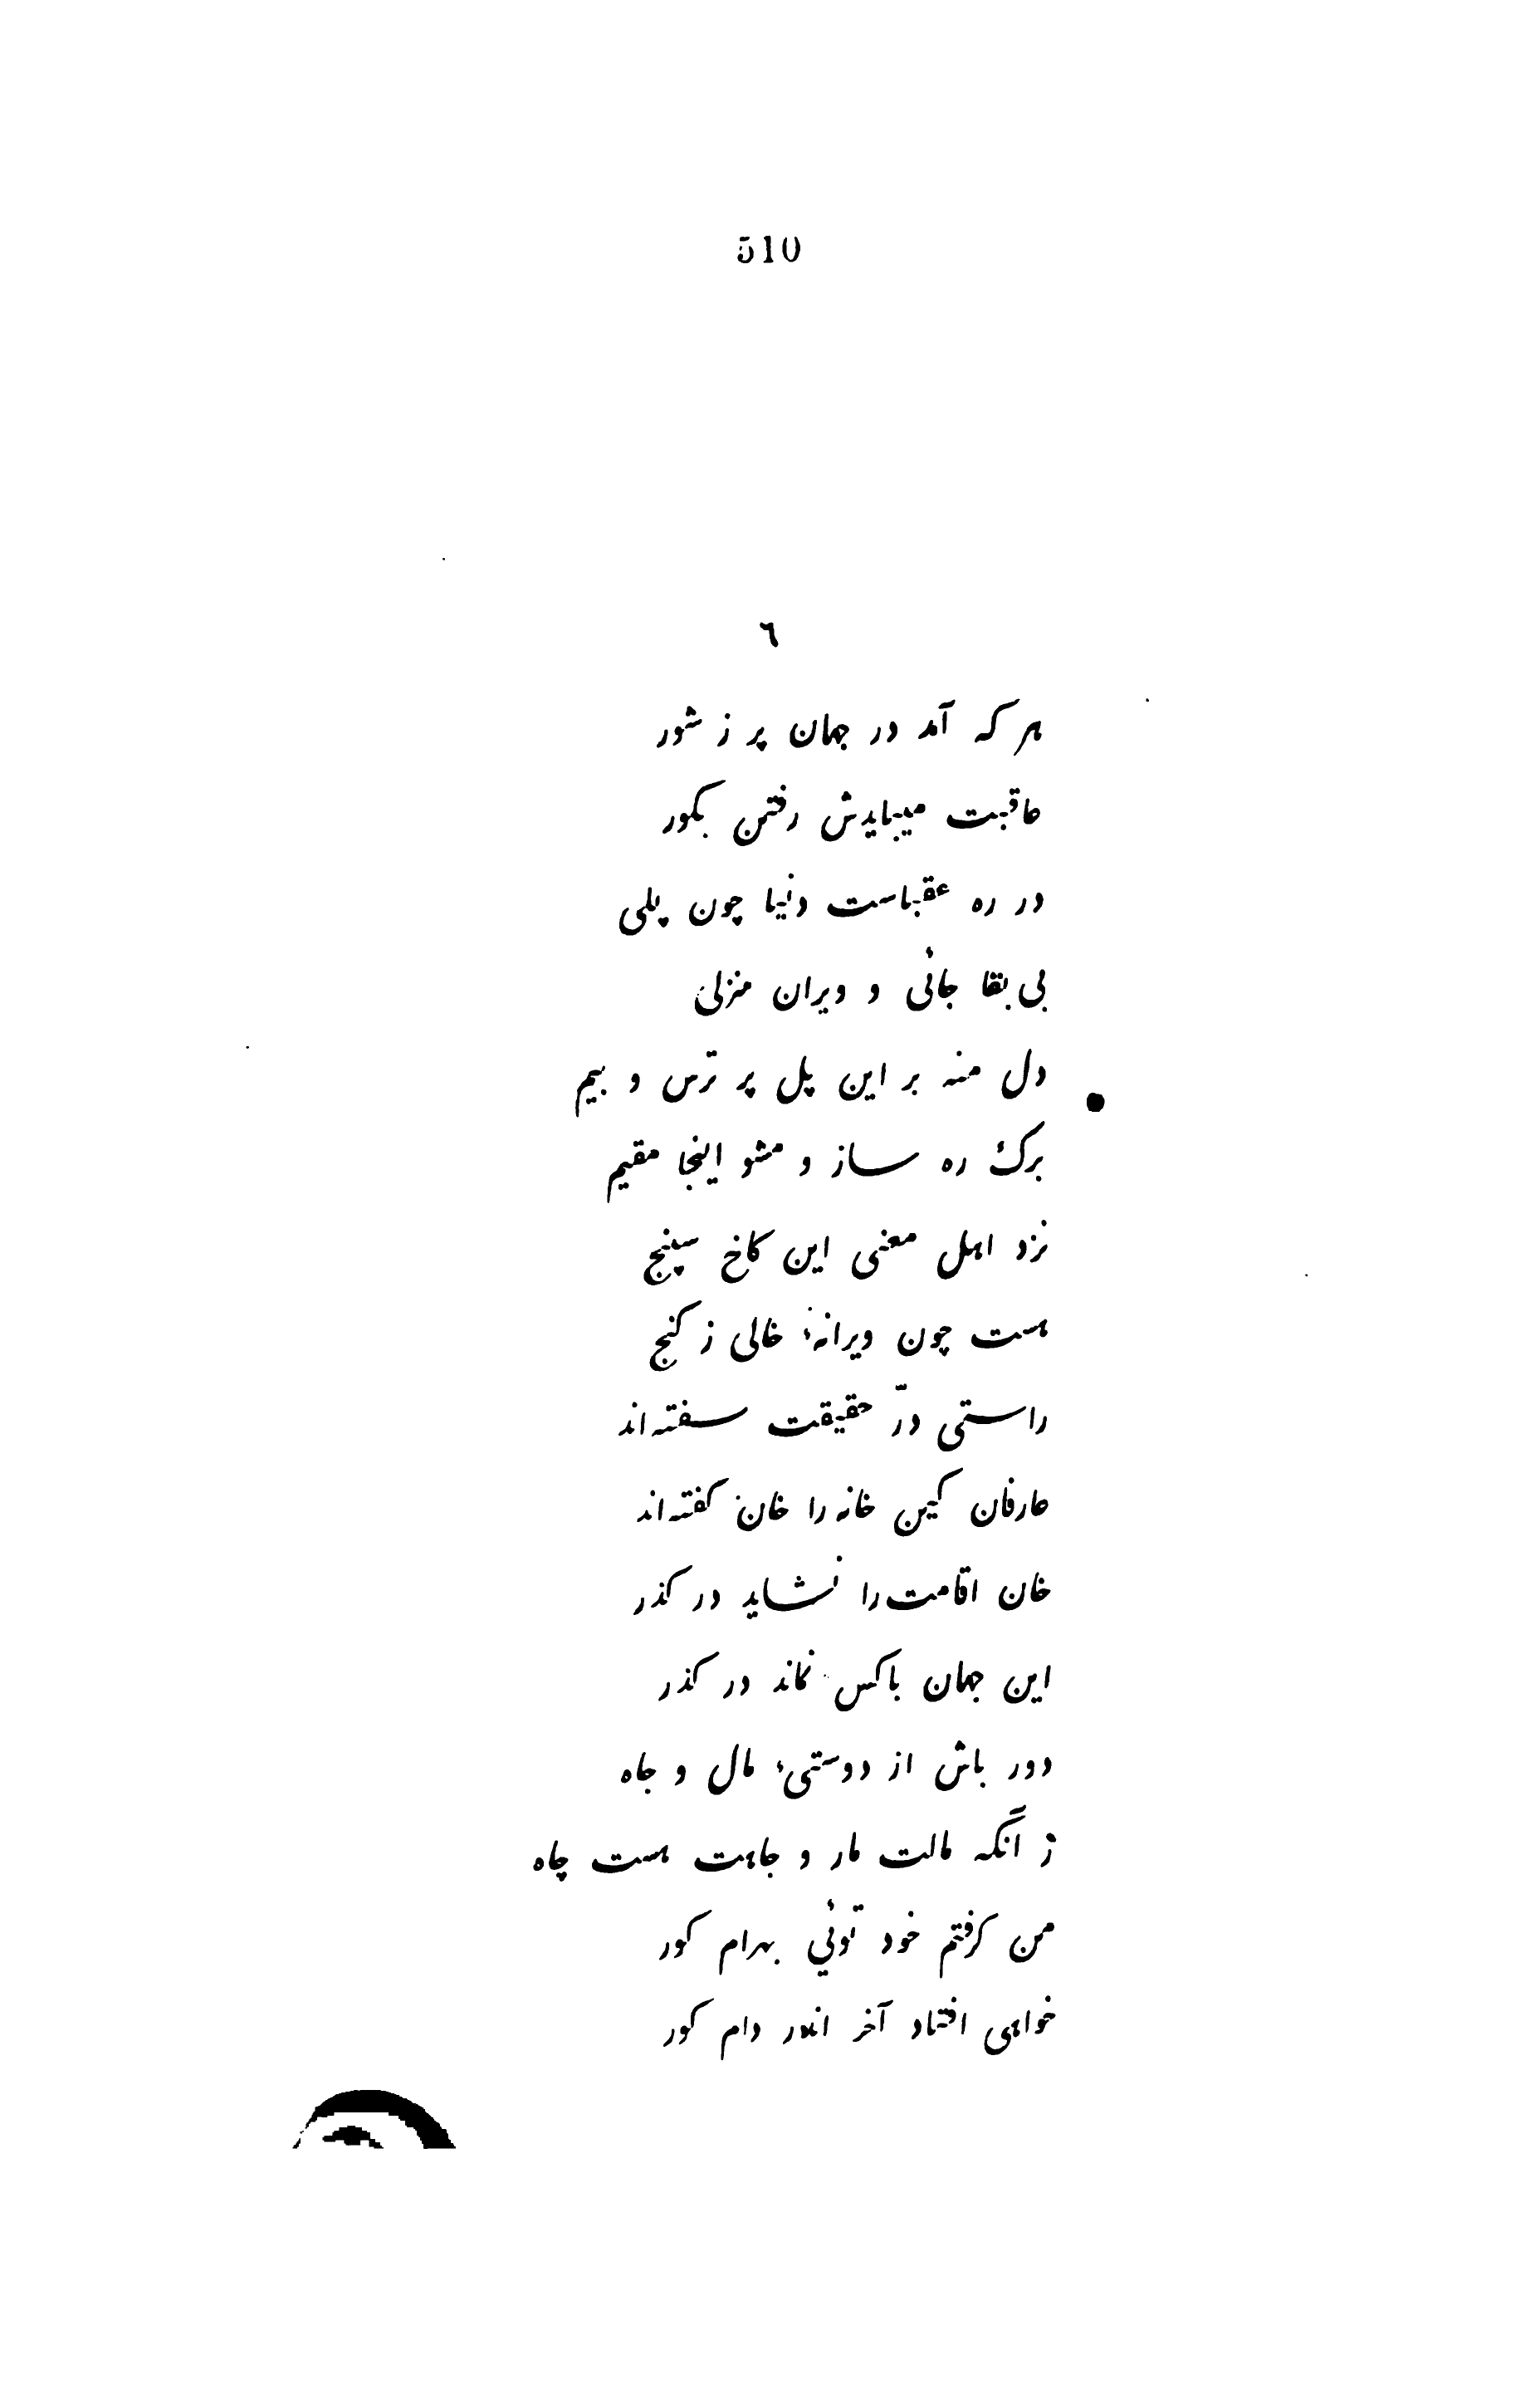 510
٦
هر که آمد در جهان پر ز شور
عاقبت میبایدش رفتن بکور
در ره عقباست دنیا چون پلی
بی بقا جائی و ویران منزلی
دل منه بر این پل پر ترس و بیم
برک ره ساز و مشو اینجا مقیم
نزد اهل معنی این کاخ سپنج
هست چون ویرانهٔ خالی ز کنج
راستی درّ حقیقت سفته‌اند
عارفان کین خانه را خان کفته‌اند
خان اقامت را نشاید در کذر
این جهان با کس نماند در کذر
دور باش از دوستیٔ مال و جاه
ز آنکه مالت مار و جاهت هست چاه
من کرفتم خود توئي بهرام کور
خواهی افتاد آخر اندر دام کور